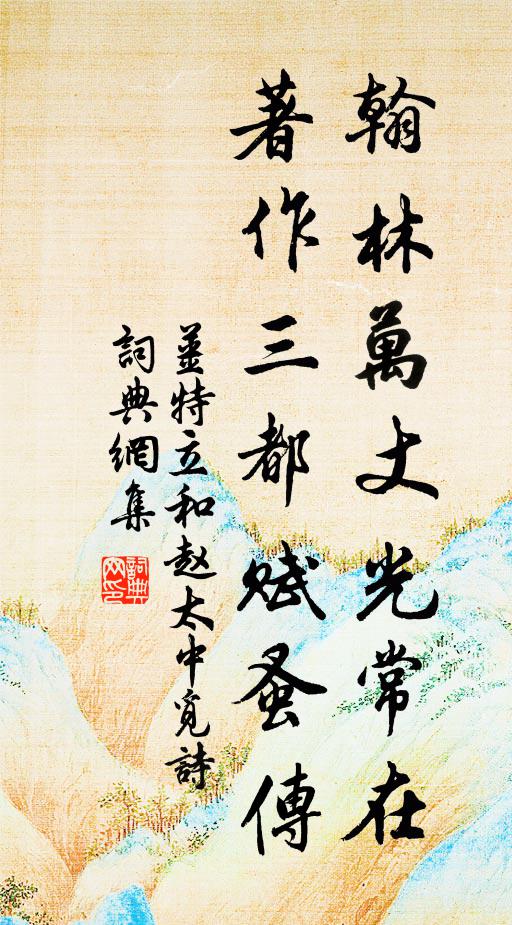 翰林萬丈光常在
著作三都賦蚤傳
姜特立和赵太中覓詩
詞典網集
詞典
网印